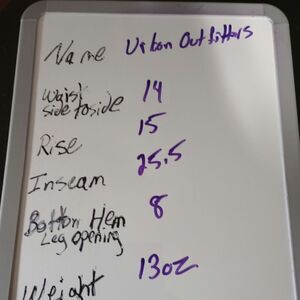 Name Urban Outfitters
Waist 14
side to side
Rise 15
Inseam 25.5
Bottom Hem 8
Leg opening
Weight 13oz